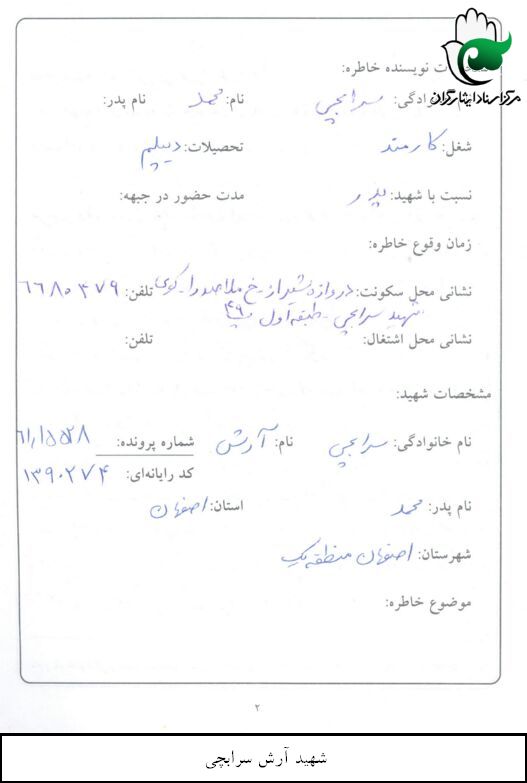 مرکز اسناد ایثارگران
مشخصات نویسنده خاطره:
نام خانوادگی: سرابچی نام: محمد نام پدر:
شغل: کارمند تحصیلات: دیپلم
نسبت با شهید: پدر مدت حضور در جبهه:
زمان وقوع خاطره:
نشانی محل سکونت: دروازه شیراز - خ ملاصدرا - کوی تلفن: ۶۶۸۰۳۷۹
شهید سرابچی - طبقه اول پ ۴۶
نشانی محل اشتغال: تلفن:
مشخصات شهید:
نام خانوادگی: سرابچی نام: آرش شماره پرونده:
کد رایانه‌ای: ۱۳۹۰۲۷۴
نام پدر: محمد استان: اصفهان
شهرستان: اصفهان منطقه یک
موضوع خاطره:
۲
شهید آرش سرابچی